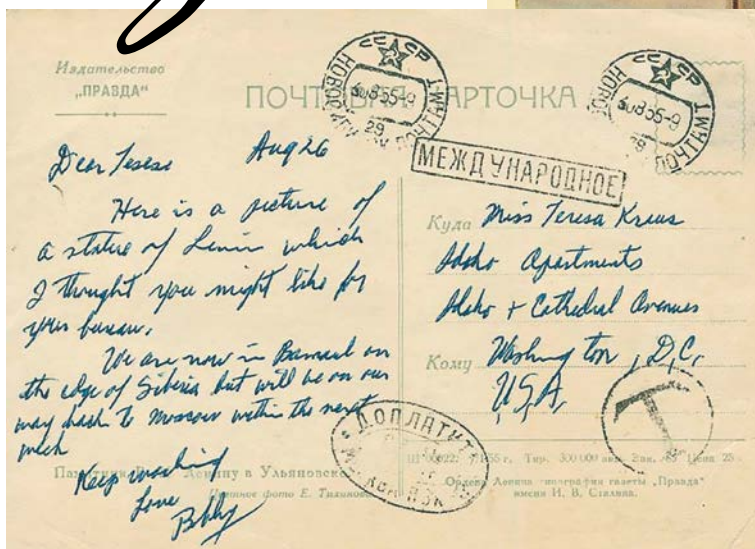 Издательство
„ПРАВДА“
ПОЧТОВАЯ КАРТОЧКА
СССР
30855-9
29
СССР
30855-9
МЕЖДУНАРОДНОЕ
Dear Terese Aug 26
Here is a picture of
a statue of Lenin which
I thought you might like for
your bureau.
We are now in Barnaul on
the edge of Siberia but will be on our
way back to Moscow within the next
week
Keep working
Love
Bobby
Куда Miss Teresa Kraus
Idaho Apartments
Idaho + Cathedral Avenues
Кому Washington, D.C.
U.S.A.
ДОПЛАТИТЬ
T
Памятник В. И. Ленину в Ульяновске
Цветное фото Е. Тиханова
1955 г. Тир. 300 000 экз. Зак. Цена 25
Ордена Ленина типография газеты „Правда“
имени И. В. Сталина.